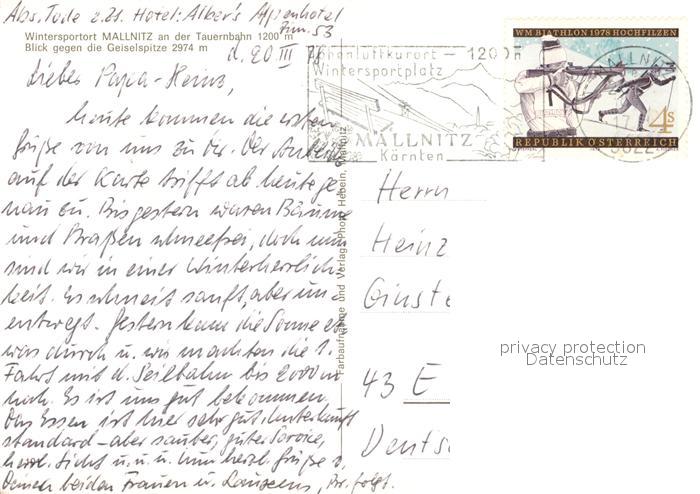 Abs. Tode z. Zt. Hotel: Alber's Alpenhotel
Zim. 53
Wintersportort MALLNITZ an der Tauernbahn 1200 m
Blick gegen die Geiselspitze 2974 m
d. 20 III
Liebes Papa-Heinz,
heute kommen die ersten
Grüße von uns zu Dir. Der Anblick
auf der Karte trifft ab heute ge
nau zu. Bis gestern waren Bäume
und Straßen schneefrei, doch nun
sind wir in einer Winterherrlich-
keit. Es schneit sanft, aber un-
entwegt. Gestern kam die Sonne et
was durch u. wir machten die 1.
Fahrt mit d. Seilbahn bis 2000 m
hoch. Es ist uns gut bekommen.
Das Essen ist hier sehr gut, Unterkunft
standard - aber sauber, guter Service,
herrl. Sicht u. u. u. Nun herzl. Grüße v.
Deinen beiden Frauen u. Br. folgt.
Farbaufnahme und Verlag: Phot. Hebein, Mallnitz
Höhenluftkurort - 1200 m
Wintersportplatz
MALLNITZ
Kärnten
WM BIATHLON 1978 HOCHFILZEN
4s
REPUBLIK ÖSTERREICH
MALLNITZ
9822
Herrn
Heinz
Ginste
43 E
Deuts
privacy protection
Datenschutz